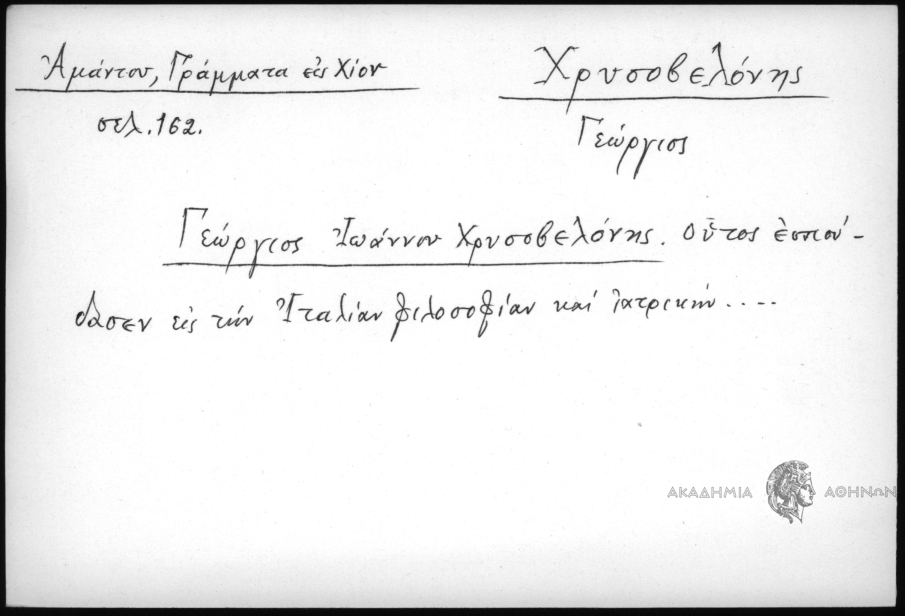 Ἀμάντου, Γράμματα εἰς Χίον
σελ. 162.
Χρυσοβελόνης
Γεώργιος
Γεώργιος Ἰωάννου Χρυσοβελόνης. οὗτος ἐσπού-
δασεν εἰς τήν Ἰταλίαν φιλοσοφίαν καί ἰατρικήν....
ΑΚΑΔΗΜΙΑ ΑΘΗΝΩΝ